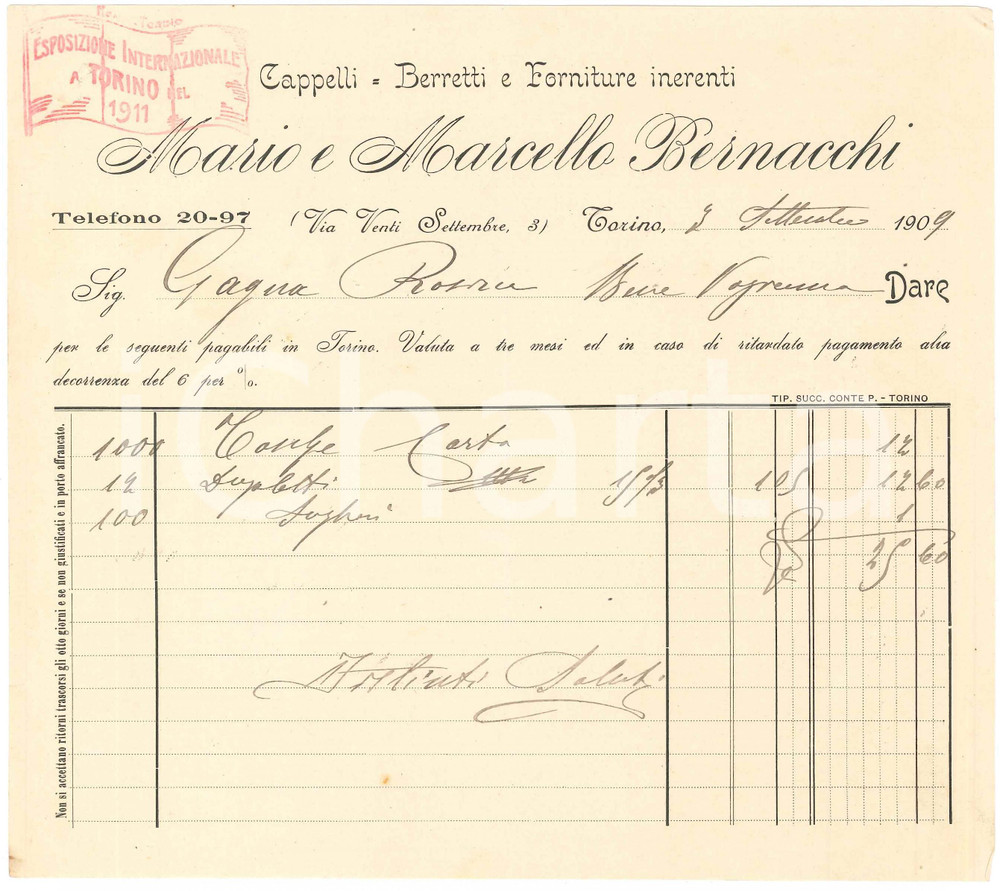 ESPOSIZIONE INTERNAZIONALE
A TORINO NEL
1911
Cappelli = Berretti e Forniture inerenti
Mario e Marcello Bernacchi
Telefono 20-97 (Via Venti Settembre, 3) Torino, 3 Settembre 1909
Sig. Gagna Rosina Bene Vagienna Dare
per le seguenti pagabili in Torino. Valuta a tre mesi ed in caso di ritardato pagamento alla
decorrenza del 6 per %.
TIP. SUCC. CONTE P. - TORINO
Non si accettano ritorni trascorsi gli otto giorni e se non giustificati e in porto affrancato.
1000 Carta 12
12 105 12 60
100 1
25 60
Distinti Saluti
iCharta